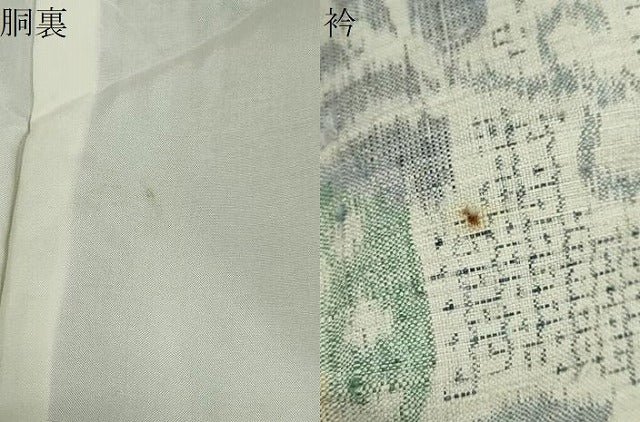 胴裏
衿